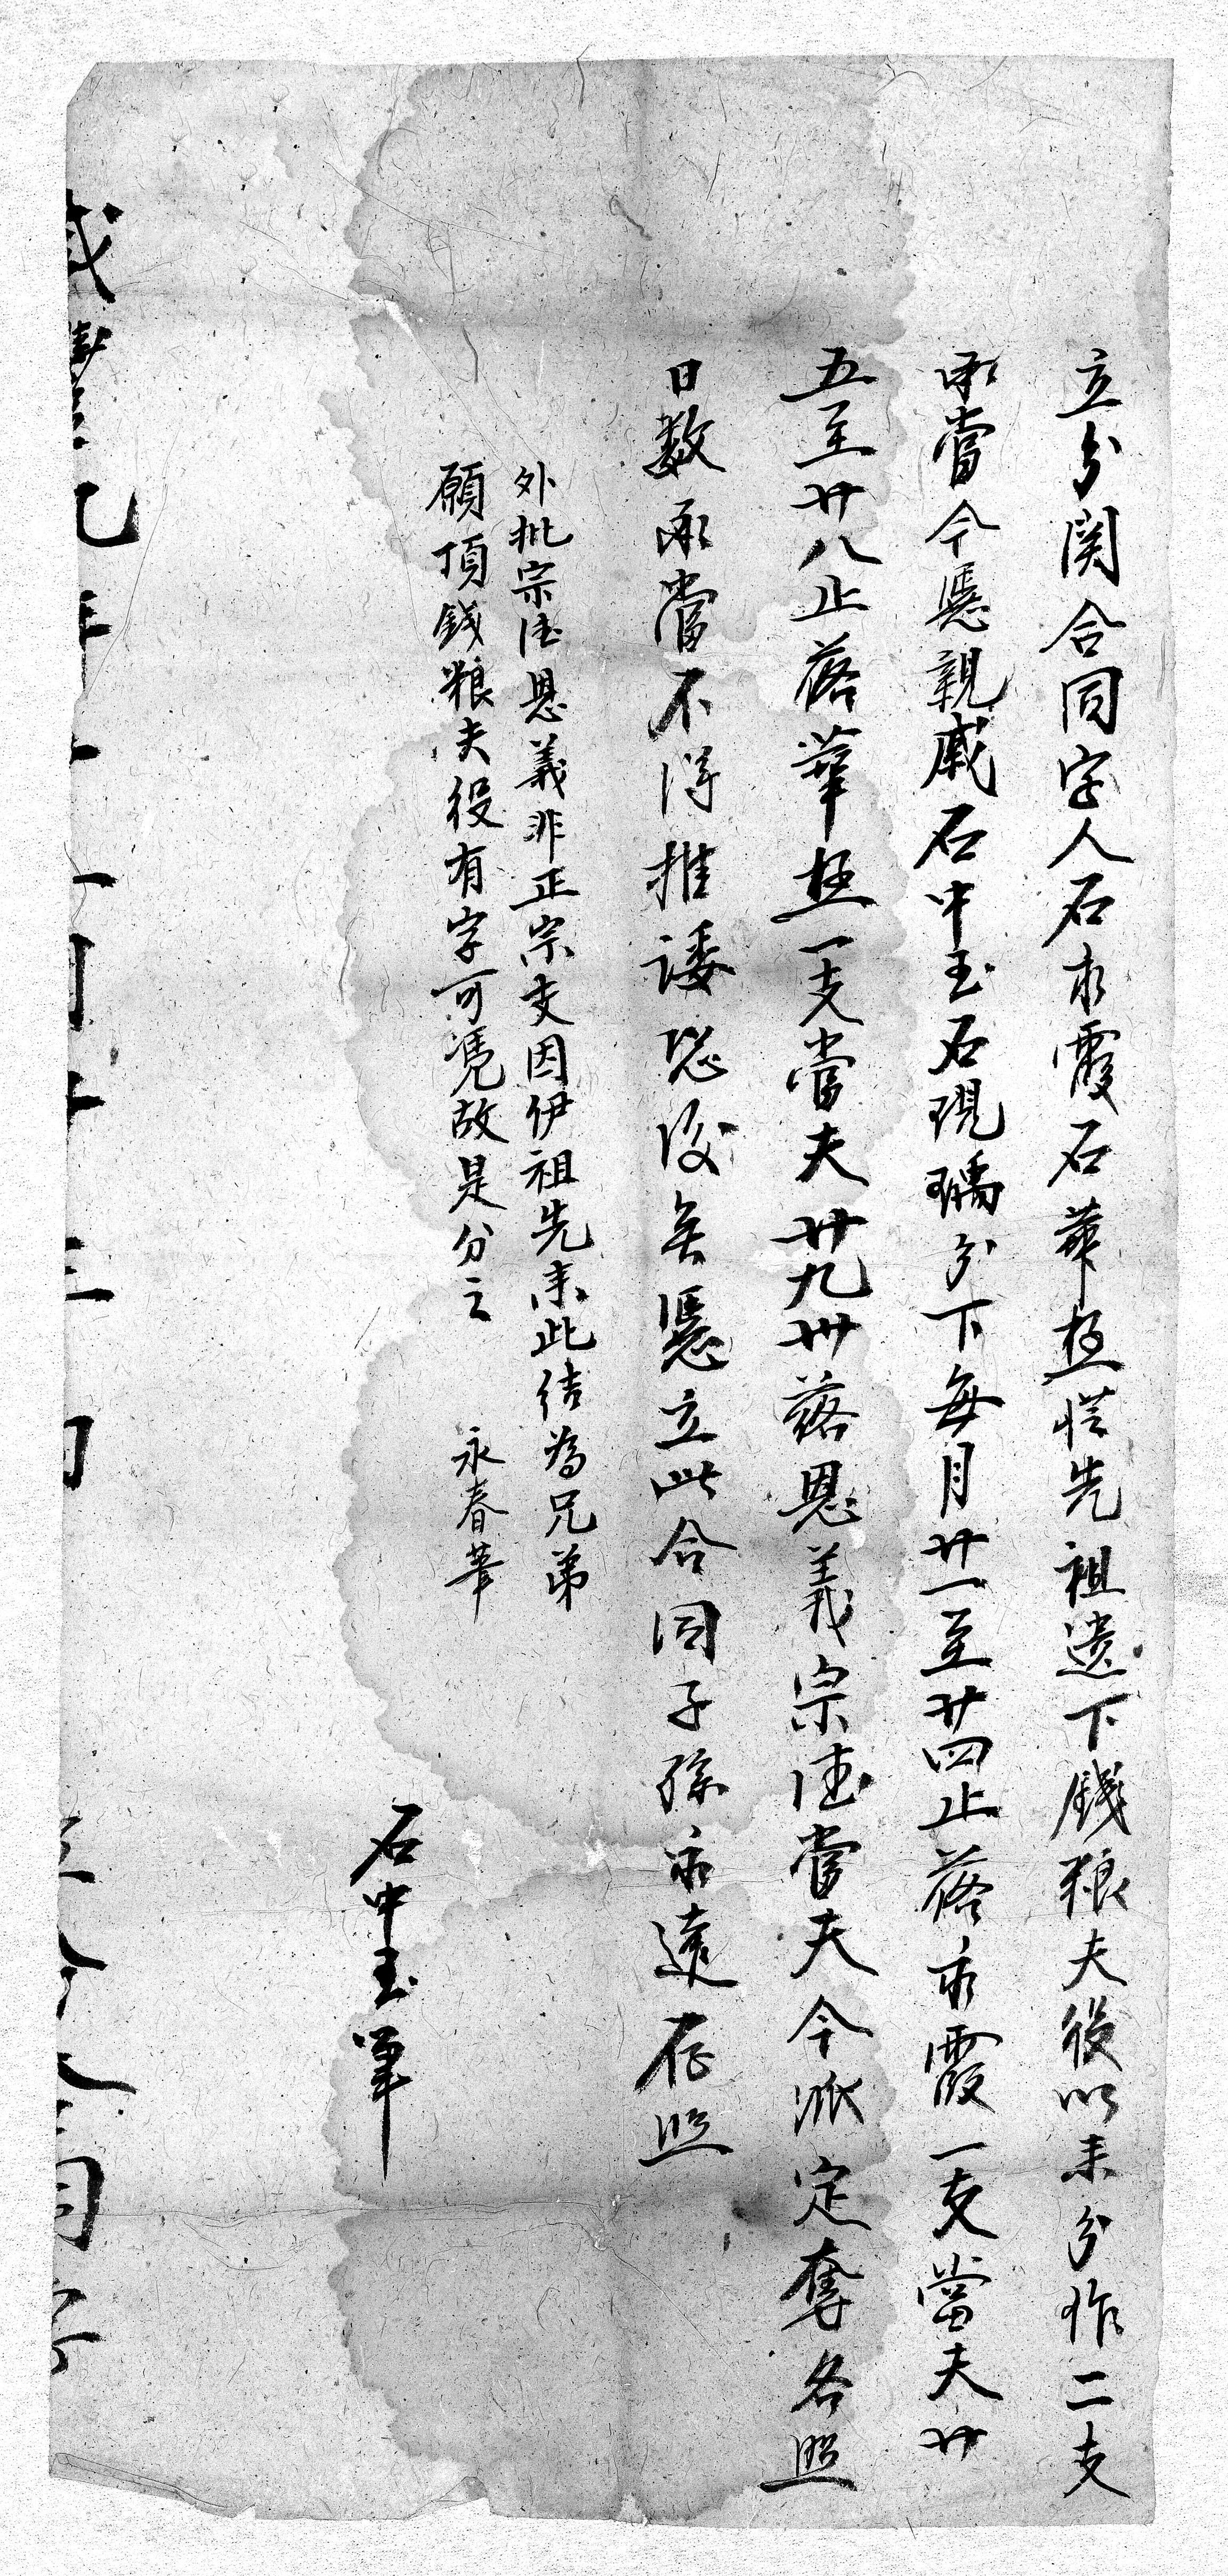 立分関合同字人石永霞石華極惟先祖遺下錢粮夫役以来分作二支
承當今憑親戚石中玉石現瑀分下每月廿一至廿四止落永霞一支當夫廿
五至廿八止落華極一支當夫廿九卅落恩義宗德當夫今派定奪各照
日数承當不得推諉恐後無憑立此合同子孫永遠存照
外批宗德恩義非正宗支因伊祖先來此结為兄弟
願頂錢粮夫役有字可凴故是分之 永春華
石中玉筆